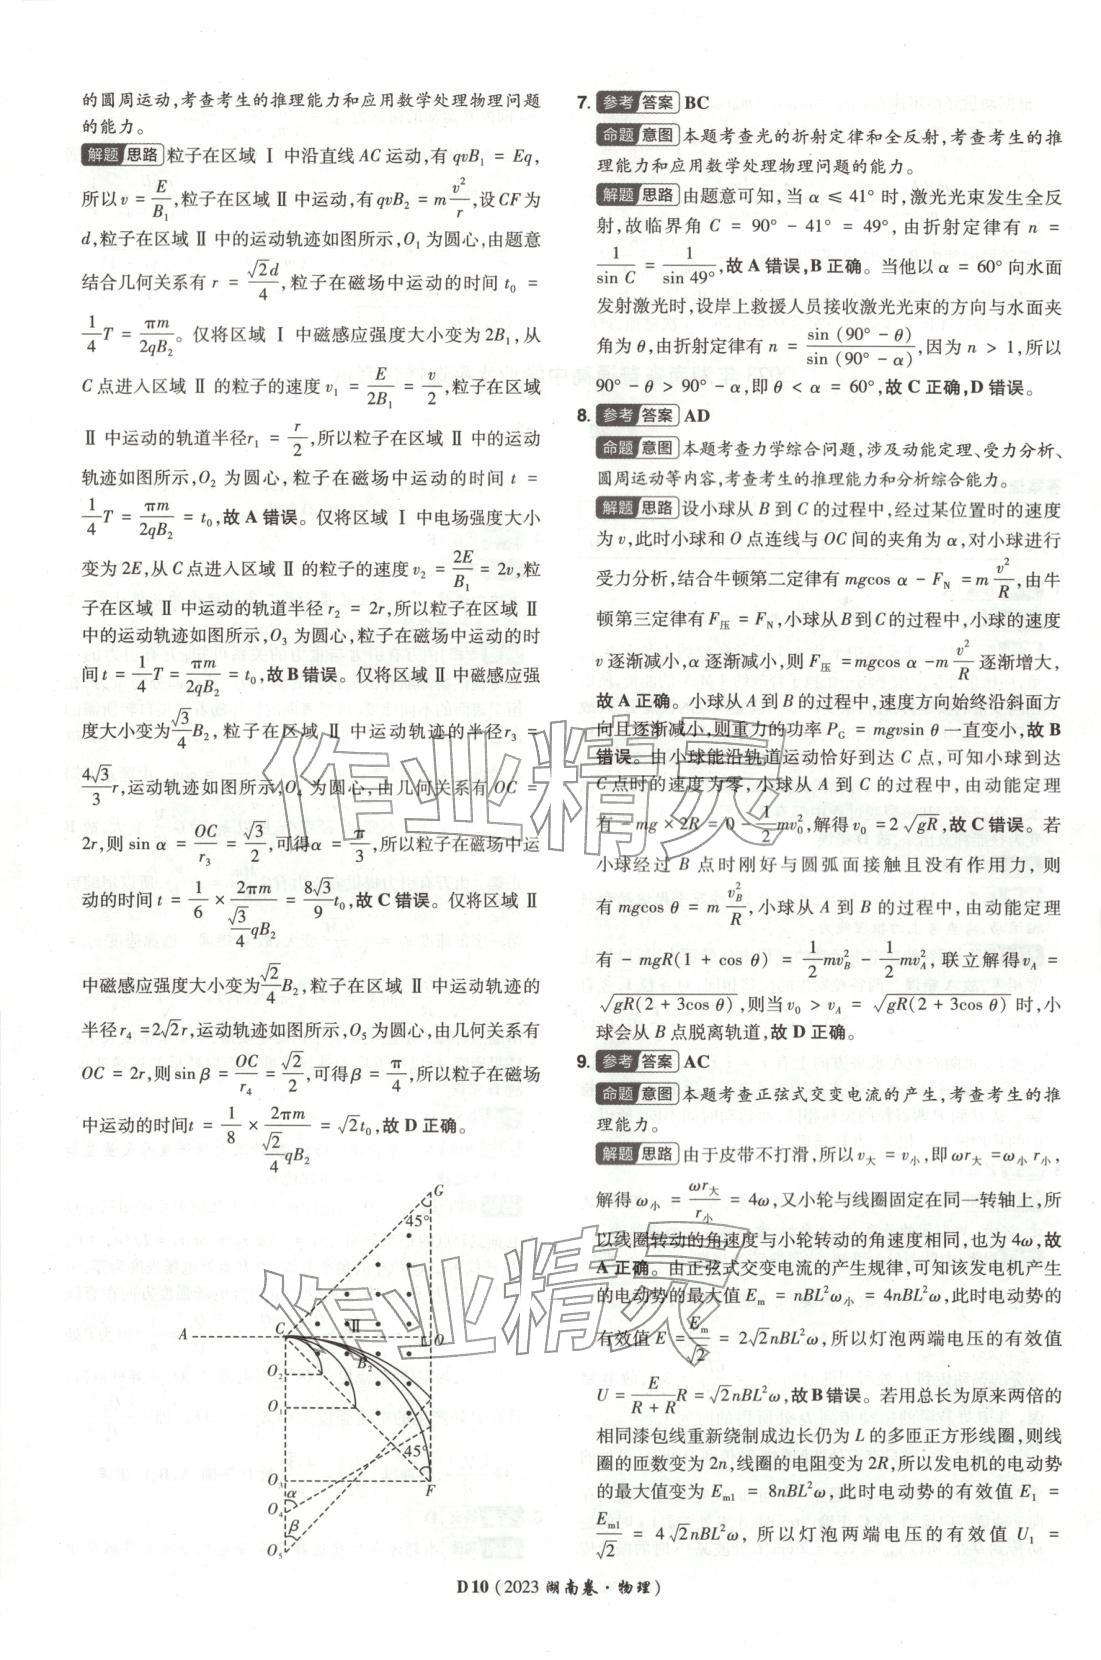 的圆周运动,考查考生的推理能力和应用数学处理物理问题
的能力。
解题 思路 粒子在区域 Ⅰ 中沿直线 AC 运动,有 qvB₁ = Eq,
所以 v = E/B₁,粒子在区域 Ⅱ 中运动,有 qvB₂ = m v²/r,设 CF 为
d,粒子在区域 Ⅱ 中的运动轨迹如图所示,O₁ 为圆心,由题意
结合几何关系有 r = √2d/4,粒子在磁场中运动的时间 t₀ =
1/4 T = πm/2qB₂。仅将区域 Ⅰ 中磁感应强度大小变为 2B₁,从
C 点进入区域 Ⅱ 的粒子的速度 v₁ = E/2B₁ = v/2,粒子在区域
Ⅱ 中运动的轨道半径 r₁ = r/2,所以粒子在区域 Ⅱ 中的运动
轨迹如图所示,O₂ 为圆心,粒子在磁场中运动的时间 t =
1/4 T = πm/2qB₂ = t₀,故 A 错误。仅将区域 Ⅰ 中电场强度大小
变为 2E,从 C 点进入区域 Ⅱ 的粒子的速度 v₂ = 2E/B₁ = 2v,粒
子在区域 Ⅱ 中运动的轨道半径 r₂ = 2r,所以粒子在区域 Ⅱ
中的运动轨迹如图所示,O₃ 为圆心,粒子在磁场中运动的时
间 t = 1/4 T = πm/2qB₂ = t₀,故 B 错误。仅将区域 Ⅱ 中磁感应强
度大小变为 √3/4 B₂,粒子在区域 Ⅱ 中运动轨迹的半径 r₃ =
4√3/3 r,运动轨迹如图所示,O₄ 为圆心,由几何关系有 OC =
2r,则 sin α = OC/r₃ = √3/2,可得 α = π/3,所以粒子在磁场中运
动的时间 t = 1/6 × 2πm/(√3/4 qB₂) = 8√3/9 t₀,故 C 错误。仅将区域 Ⅱ
中磁感应强度大小变为 √2/4 B₂,粒子在区域 Ⅱ 中运动轨迹的
半径 r₄ = 2√2r,运动轨迹如图所示,O₅ 为圆心,由几何关系有
OC = 2r,则 sin β = OC/r₄ = √2/2,可得 β = π/4,所以粒子在磁场
中运动的时间 t = 1/8 × 2πm/(√2/4 qB₂) = √2t₀,故 D 正确。
G
45°
A
C
Ⅱ
O
B₂
O₂
O₁
45°
O₃
F
α
O₄
β
O₅
7. 参考 答案 BC
命题 意图 本题考查光的折射定律和全反射,考查考生的推
理能力和应用数学处理物理问题的能力。
解题 思路 由题意可知,当 α ⩽ 41° 时,激光光束发生全反
射,故临界角 C = 90° - 41° = 49°,由折射定律有 n =
1/sin C = 1/sin 49°,故 A 错误,B 正确。当他以 α = 60° 向水面
发射激光时,设岸上救援人员接收激光光束的方向与水面夹
角为 θ,由折射定律有 n = sin (90° - θ)/sin (90° - α),因为 n > 1,所以
90° - θ > 90° - α,即 θ < α = 60°,故 C 正确,D 错误。
8. 参考 答案 AD
命题 意图 本题考查力学综合问题,涉及动能定理、受力分析、
圆周运动等内容,考查考生的推理能力和分析综合能力。
解题 思路 设小球从 B 到 C 的过程中,经过某位置时的速度
为 v,此时小球和 O 点连线与 OC 间的夹角为 α,对小球进行
受力分析,结合牛顿第二定律有 mgcos α - F_N = m v²/R,由牛
顿第三定律有 F压 = F_N,小球从 B 到 C 的过程中,小球的速度
v 逐渐减小,α 逐渐减小,则 F压 = mgcos α - m v²/R 逐渐增大,
故 A 正确。小球从 A 到 B 的过程中,速度方向始终沿斜面方
向且逐渐减小,则重力的功率 P_G = mgvsin θ 一直变小,故 B
错误。由小球能沿轨道运动恰好到达 C 点,可知小球到达
C 点时的速度为零,小球从 A 到 C 的过程中,由动能定理
有 - mg × 2R = 0 - 1/2 mv₀²,解得 v₀ = 2√gR,故 C 错误。若
小球经过 B 点时刚好与圆弧面接触且没有作用力,则
有 mgcos θ = m v_B²/R,小球从 A 到 B 的过程中,由动能定理
有 - mgR(1 + cos θ) = 1/2 mv_B² - 1/2 mv_A²,联立解得 v_A =
√gR(2 + 3cos θ),则当 v₀ > v_A = √gR(2 + 3cos θ) 时,小
球会从 B 点脱离轨道,故 D 正确。
9. 参考 答案 AC
命题 意图 本题考查正弦式交变电流的产生,考查考生的推
理能力。
解题 思路 由于皮带不打滑,所以 v大 = v小,即 ωr大 = ω小 r小,
解得 ω小 = ωr大/r小 = 4ω,又小轮与线圈固定在同一转轴上,所
以线圈转动的角速度与小轮转动的角速度相同,也为 4ω,故
A 正确。由正弦式交变电流的产生规律,可知该发电机产生
的电动势的最大值 E_m = nBL²ω小 = 4nBL²ω,此时电动势的
有效值 E = E_m/√2 = 2√2nBL²ω,所以灯泡两端电压的有效值
U = E/(R + R) R = √2nBL²ω,故 B 错误。若用总长为原来两倍的
相同漆包线重新绕制成边长仍为 L 的多匝正方形线圈,则线
圈的匝数变为 2n,线圈的电阻变为 2R,所以发电机的电动势
的最大值变为 E_m1 = 8nBL²ω,此时电动势的有效值 E₁ =
E_m1/√2 = 4√2nBL²ω,所以灯泡两端电压的有效值 U₁ =
D10(2023 湖南卷·物理)
作业精灵
作业精灵